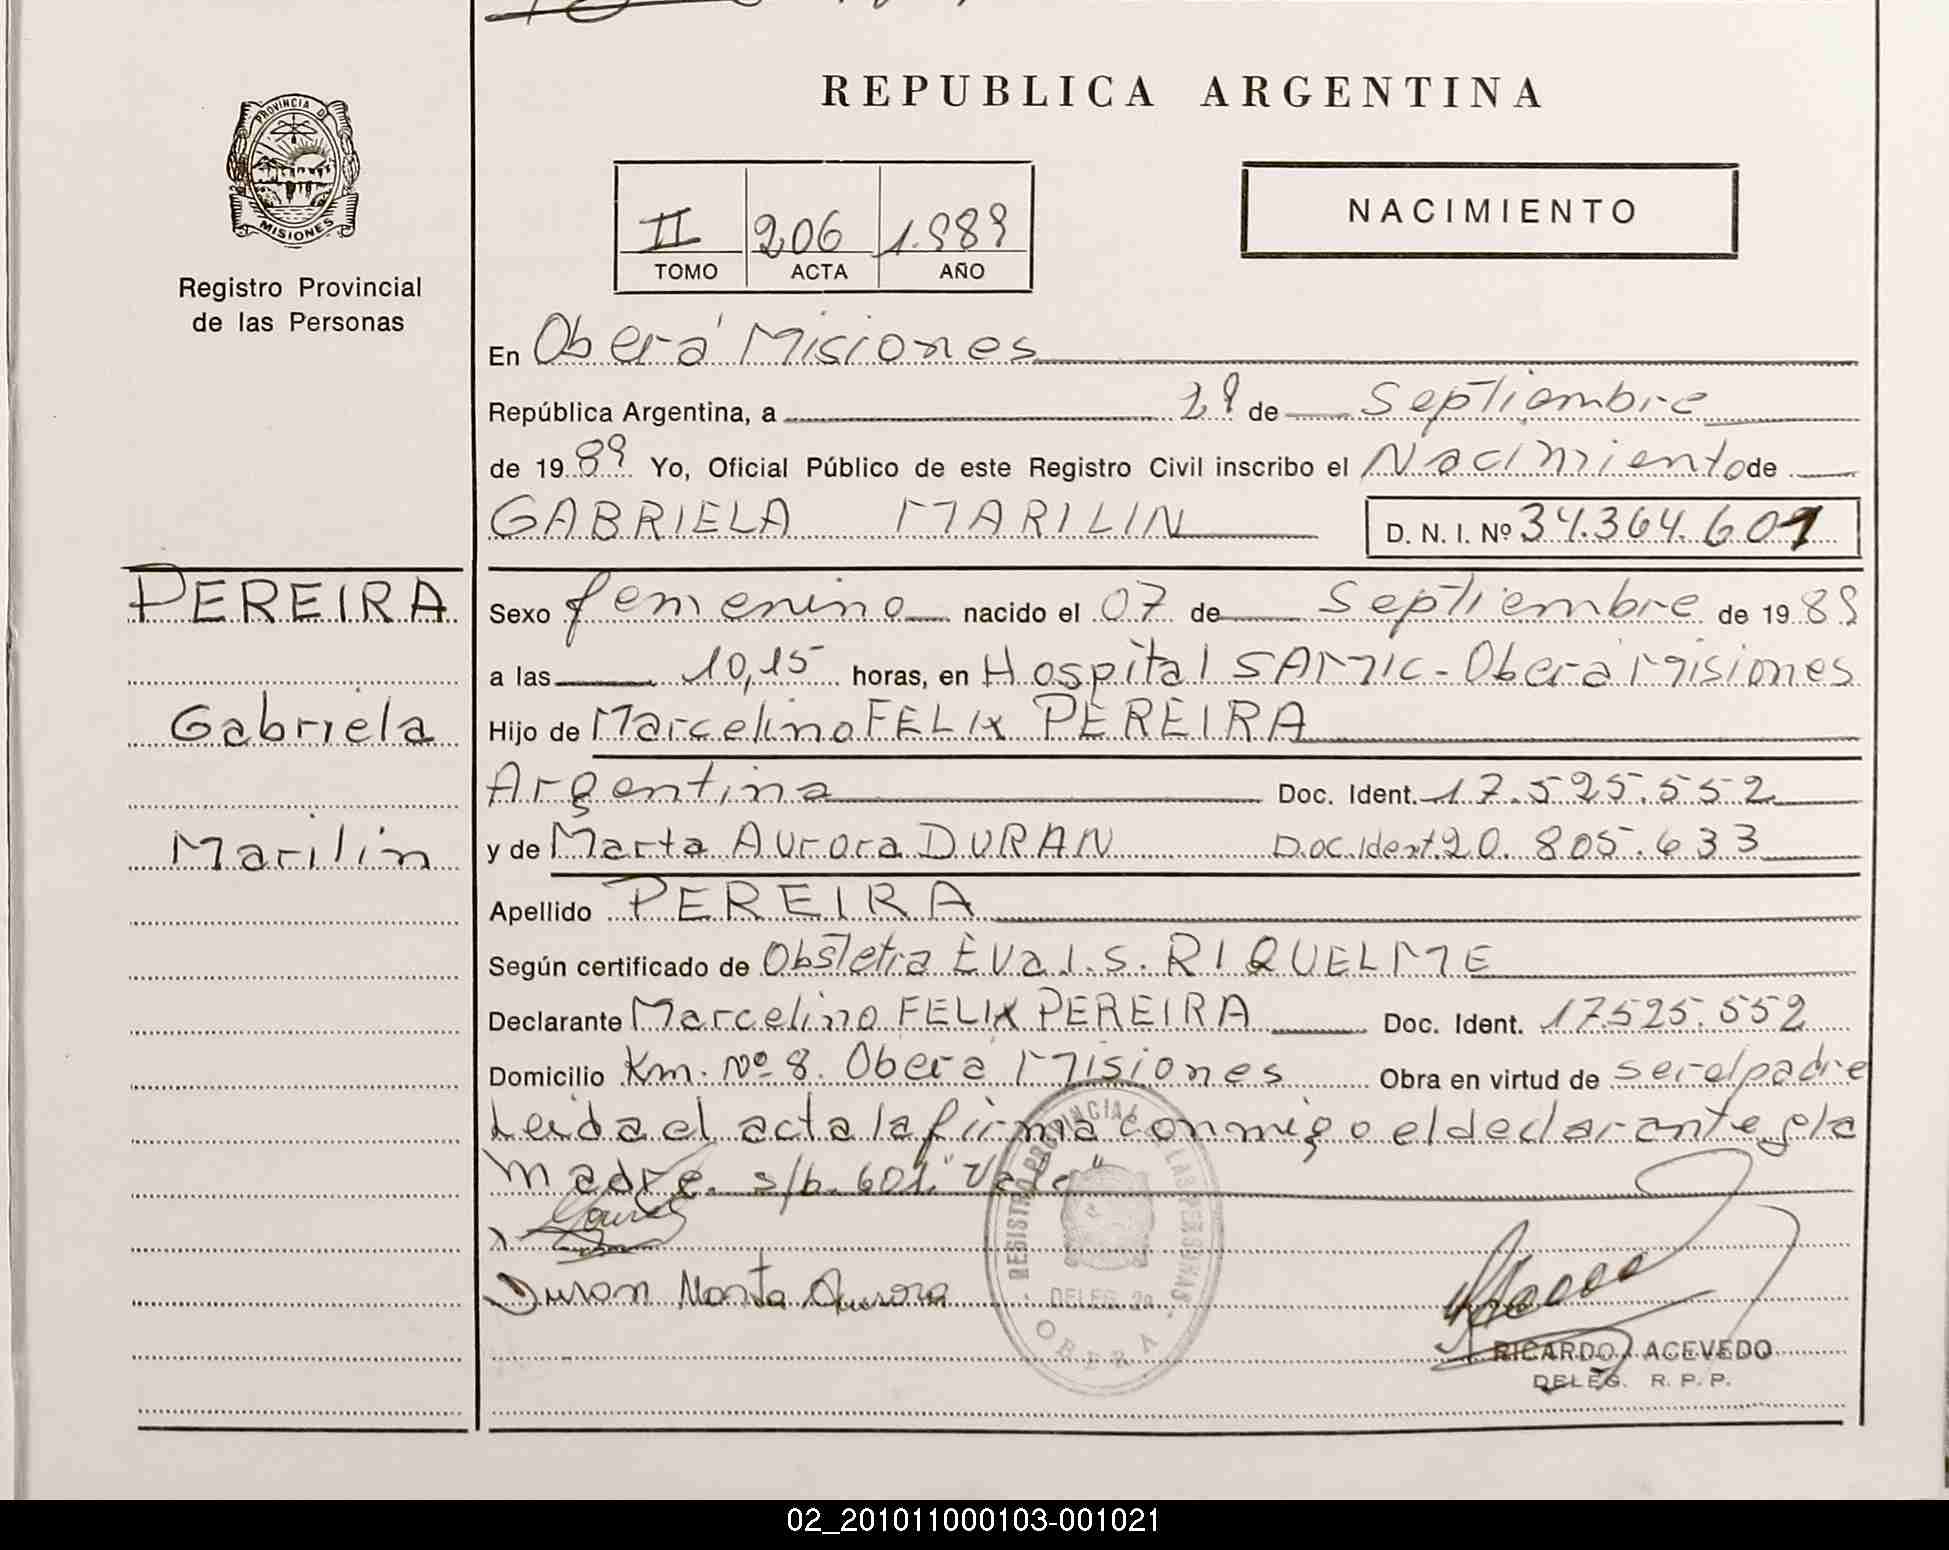 REPUBLICA ARGENTINA
PROVINCIA D
MISIONES
Registro Provincial
de las Personas
II 206 1.989
TOMO ACTA AÑO
NACIMIENTO
En Oberá Misiones
República Argentina, a de Septiembre
de 1989 Yo, Oficial Público de este Registro Civil inscribo el Nacimiento de
GABRIELA MARILIN D. N. I. Nº 34.364.601
PEREIRA
Gabriela
Marilin
Sexo femenino nacido el 07 de Septiembre de 1989
a las 10,15 horas, en Hospital SAMIC - Oberá Misiones
Hijo de Marcelino FELIX PEREIRA
Argentina Doc. Ident. 17.525.552
y de Marta Aurora DURAN Doc. Ident. 20.805.633
Apellido PEREIRA
Según certificado de Obstetra Eva I. S. RIQUELME
Declarante Marcelino FELIX PEREIRA Doc. Ident. 17525.552
Domicilio Km. Nº 8. Oberá Misiones Obra en virtud de ser el padre
Leida el acta la firma conmigo el declarante y la
madre. s/b. 601. "Vale"
Duran Marta Aurora
REGISTRO PROVINCIAL DE LAS PERSONAS
DELEG. 2a
OBERA
RICARDO ACEVEDO
DELEG. R. P. P.
02_201011000103-001021